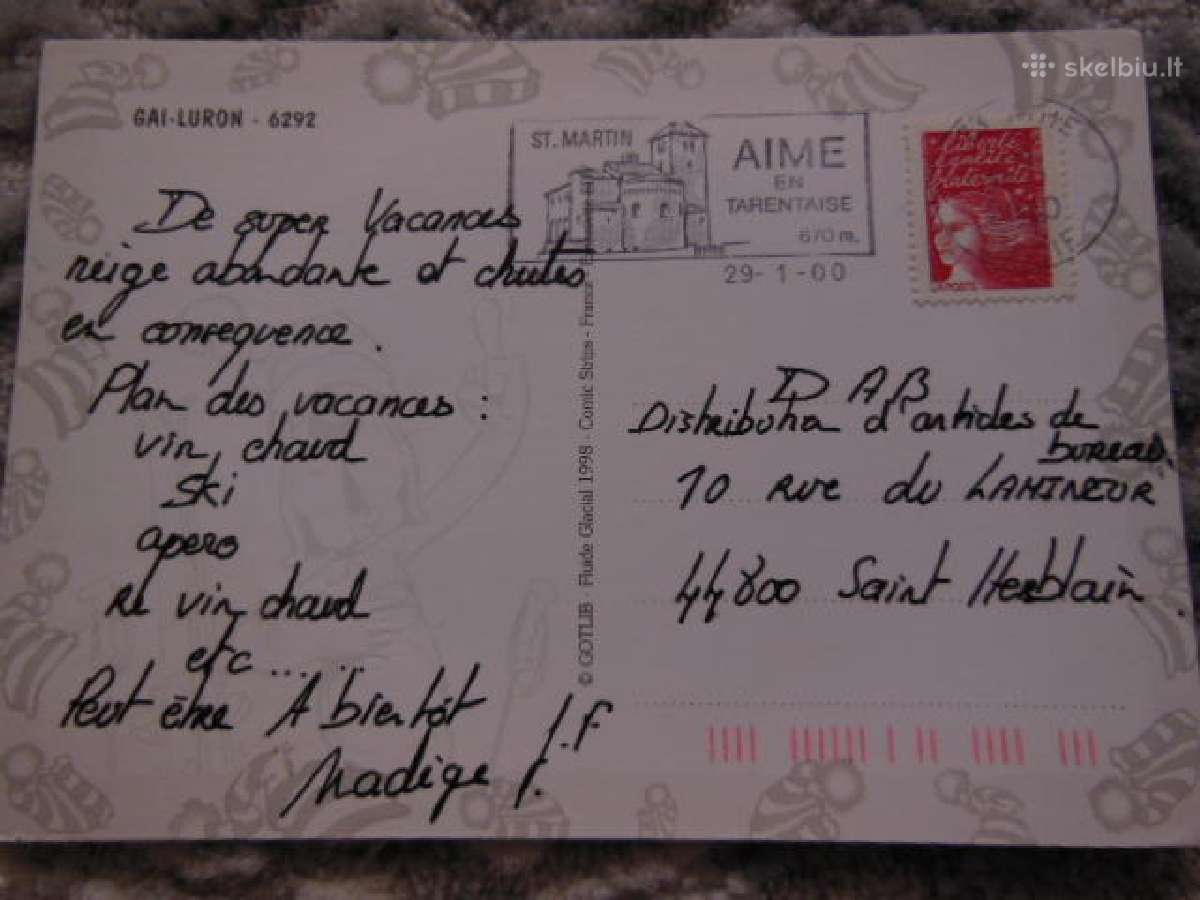 skelbiu.lt
GAI-LURON - 6292
ST. MARTIN
AIME
EN
TARENTAISE
670 m.
29-1-00
Liberté
Egalité
Fraternité
LA POSTE
De super Vacances
neige abondante et chutes
en conséquence.
Plan des vacances :
vin chaud
Ski
apero
Re vin chaud
etc......
Peut être A bientôt
J.F
Nadège F.
© GOTLIB - Fluide Glacial 1998 - Comic Strips - France
D A B
Distribution d'articles de
bureau
10 Rue du LAMINEUR
44800 Saint Herblain.